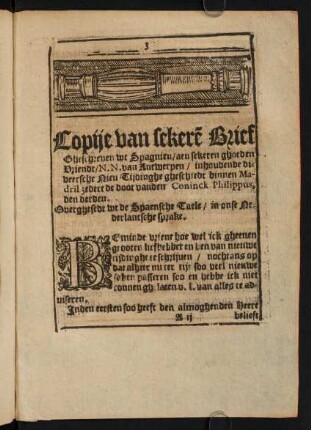 3
Copije van sekerē Brief
Gheschreven wt Spagnien/ aen sekeren ghoeden
Vriendt/ N. N. van Antwerpen / inhoudende di-
veersche Nieu Tijdinghe gheschiedt binnen Ma-
dril zedert de doot vanden Coninck Philippus,
den derden.
Overghesedt wt de Spaensche Taele / in onse Ne-
derlantsche sprake.
BEminde vrient hoe wel ick gheenen
grooten liefhebber en ben van nieuwe
tijdinghe te schrijven / nochtans op
dat alhier nu ter tijt soo veel nieuwe
saken passeren soo en hebbe ick niet
connen ghelaten v. l. van alles te ad-
viseren.
Inden eersten soo heeft den almoghenden Heere
A ij
belieft